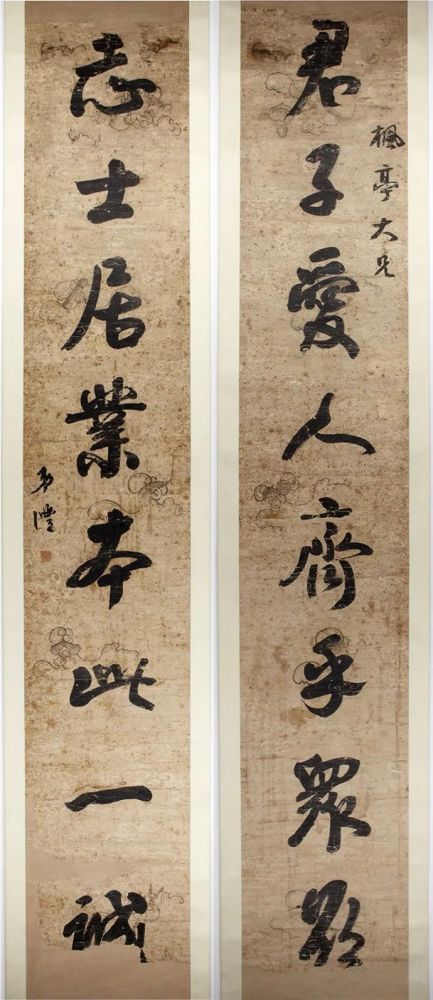 君子愛人齊乎眾
楓亭大兄
志士居業本此一誠